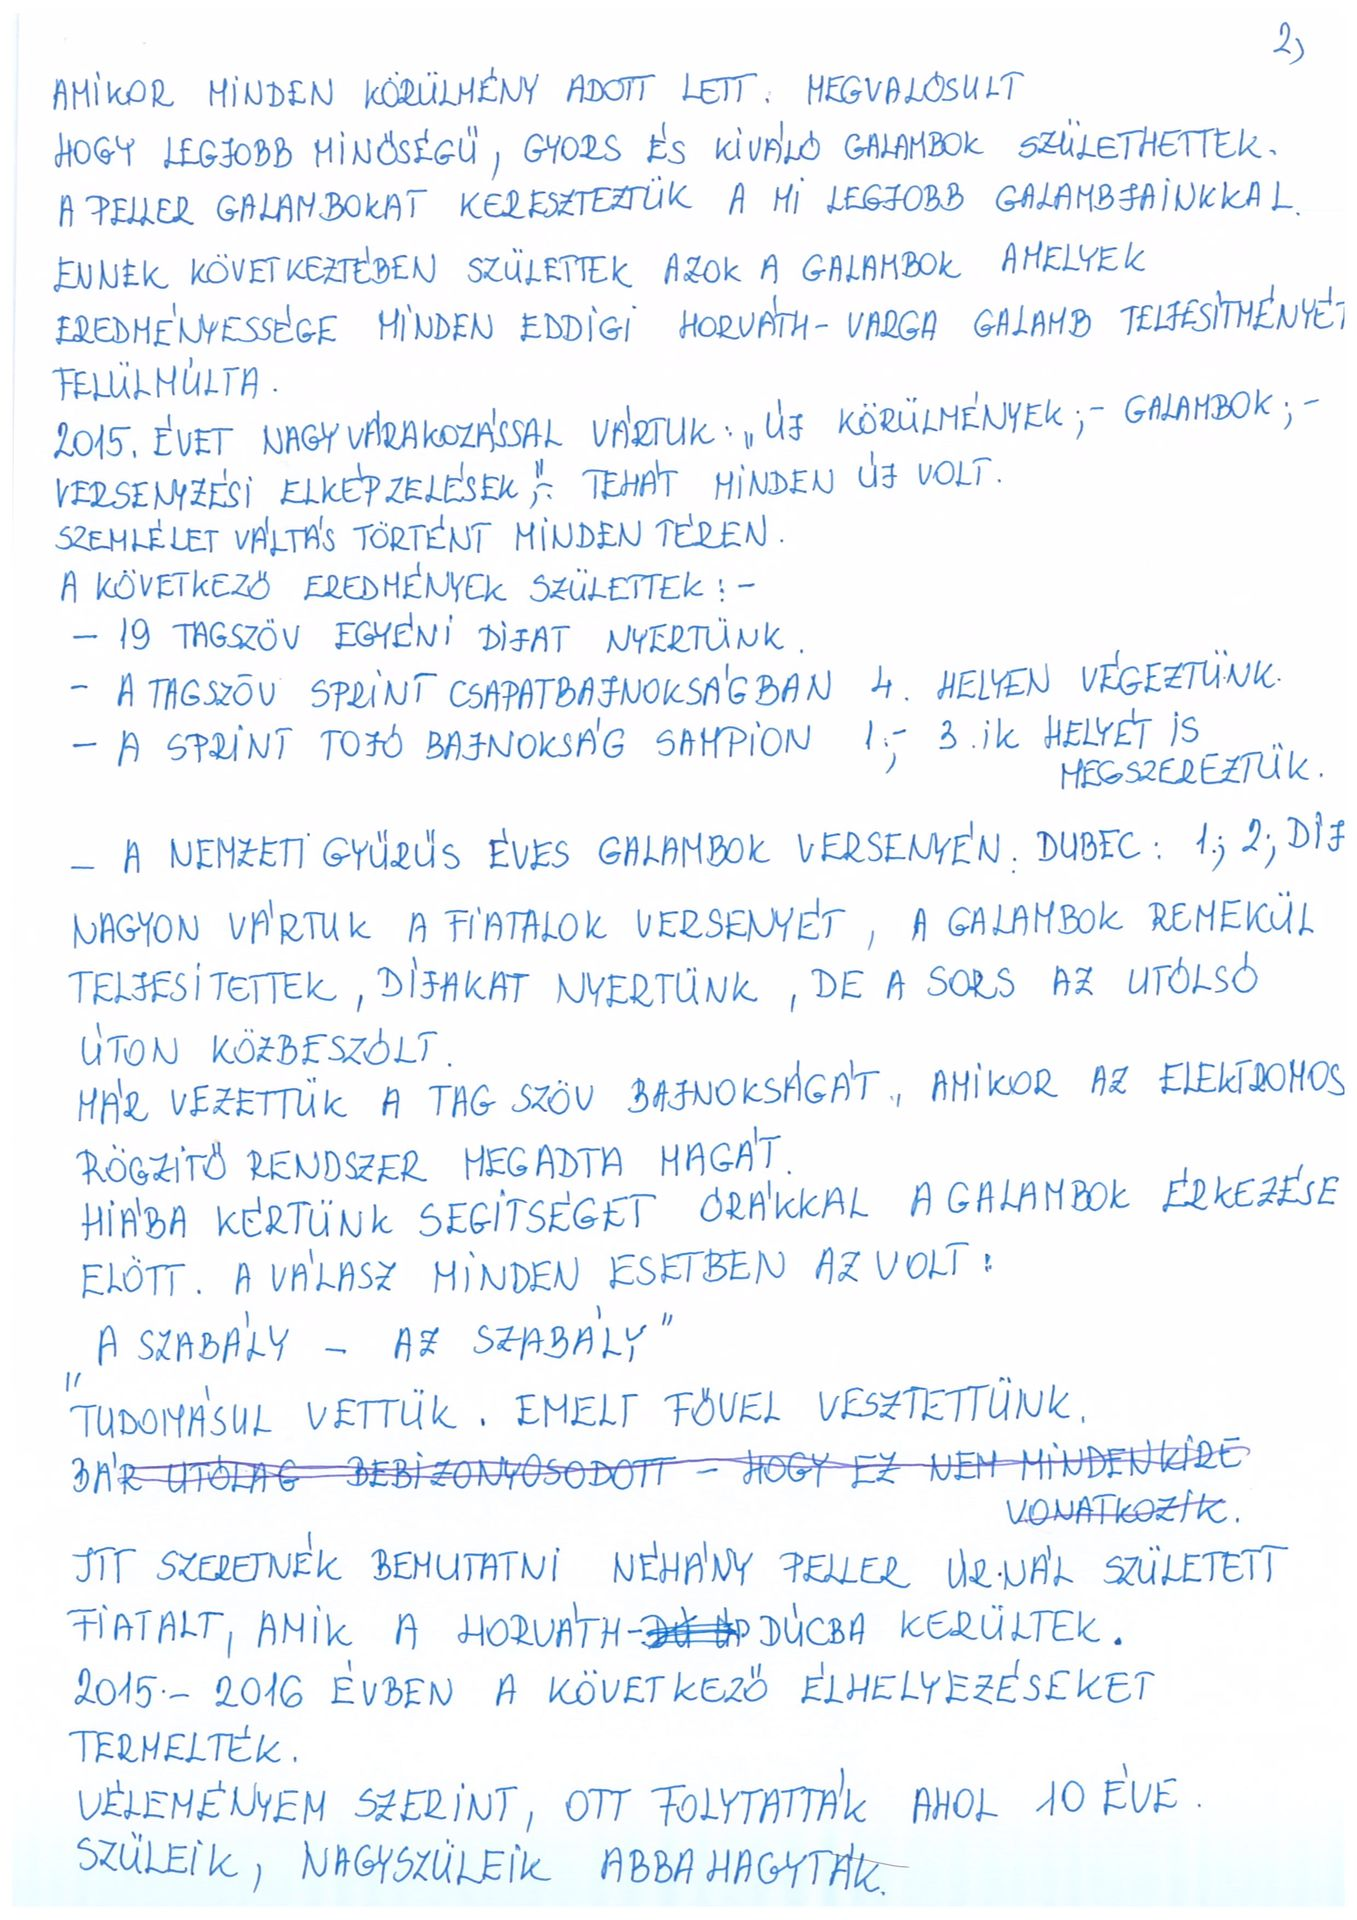 2,
AMIKOR MINDEN KÖRÜLMÉNY ADOTT LETT. MEGVALÓSULT
HOGY LEGJOBB MINŐSÉGŰ, GYORS ÉS KIVÁLÓ GALAMBOK SZÜLETHETTEK.
A PELLER GALAMBOKAT KERESZTEZTÜK A MI LEGJOBB GALAMBJAINKKAL.
ENNEK KÖVETKEZTÉBEN SZÜLETTEK AZOK A GALAMBOK AMELYEK
EREDMÉNYESSÉGE MINDEN EDDIGI HORVÁTH-VARGA GALAMB TELJESÍTMÉNYÉT
FELÜLMÚLTA.
2015. ÉVET NAGY VÁRAKOZÁSSAL VÁRTUK: „ÚJ KÖRÜLMÉNYEK;- GALAMBOK;-
VERSENYZÉSI ELKÉPZELÉSEK;"- TEHÁT MINDEN ÚJ VOLT.
SZEMLÉLET VÁLTÁS TÖRTÉNT MINDEN TÉREN.
A KÖVETKEZŐ EREDMÉNYEK SZÜLETTEK:-
- 19 TAGSZÖV EGYÉNI DÍJAT NYERTÜNK.
- A TAGSZÖV SPRINT CSAPATBAJNOKSÁGBAN 4. HELYEN VÉGEZTÜNK.
- A SPRINT TOJÓ BAJNOKSÁG SAMPION 1;- 3.ik HELYÉT IS
MEGSZEREZTÜK.
- A NEMZETI GYŰRŰS ÉVES GALAMBOK VERSENYÉN. DUBEC: 1.; 2; DÍJ
NAGYON VÁRTUK A FIATALOK VERSENYÉT, A GALAMBOK REMEKÜL
TELJESÍTETTEK, DÍJAKAT NYERTÜNK, DE A SORS AZ UTÓLSÓ
ÚTON KÖZBESZÓLT.
MÁR VEZETTÜK A TAG SZÖV BAJNOKSÁGÁT., AMIKOR AZ ELEKTROMOS
RÖGZITŐ RENDSZER MEGADTA MAGÁT.
HIÁBA KÉRTÜNK SEGÍTSÉGET ÓRÁKKAL A GALAMBOK ÉRKEZÉSE
ELÖTT. A VÁLASZ MINDEN ESETBEN AZ VOLT:
"A SZABÁLY - AZ SZABÁLY"
TUDOMÁSUL VETTÜK. EMELT FŐVEL VESZTETTÜNK.
BÁR UTÓLAG BEBIZONYOSODOTT - HOGY EZ NEM MINDENKIRE
VONATKOZIK.
ITT SZERETNÉK BEMUTATNI NÉHÁNY PELLER ÚR.NÁL SZÜLETETT
FIATALT, AMIK A HORVÁTH- DÚCBA KERÜLTEK.
2015.- 2016 ÉVBEN A KÖVETKEZŐ ÉLHELYEZÉSEKET
TERMELTÉK.
VÉLEMÉNYEM SZERINT, OTT FOLYTATTÁK AHOL 10 ÉVE.
SZÜLEIK, NAGYSZÜLEIK ABBA HAGYTÁK.